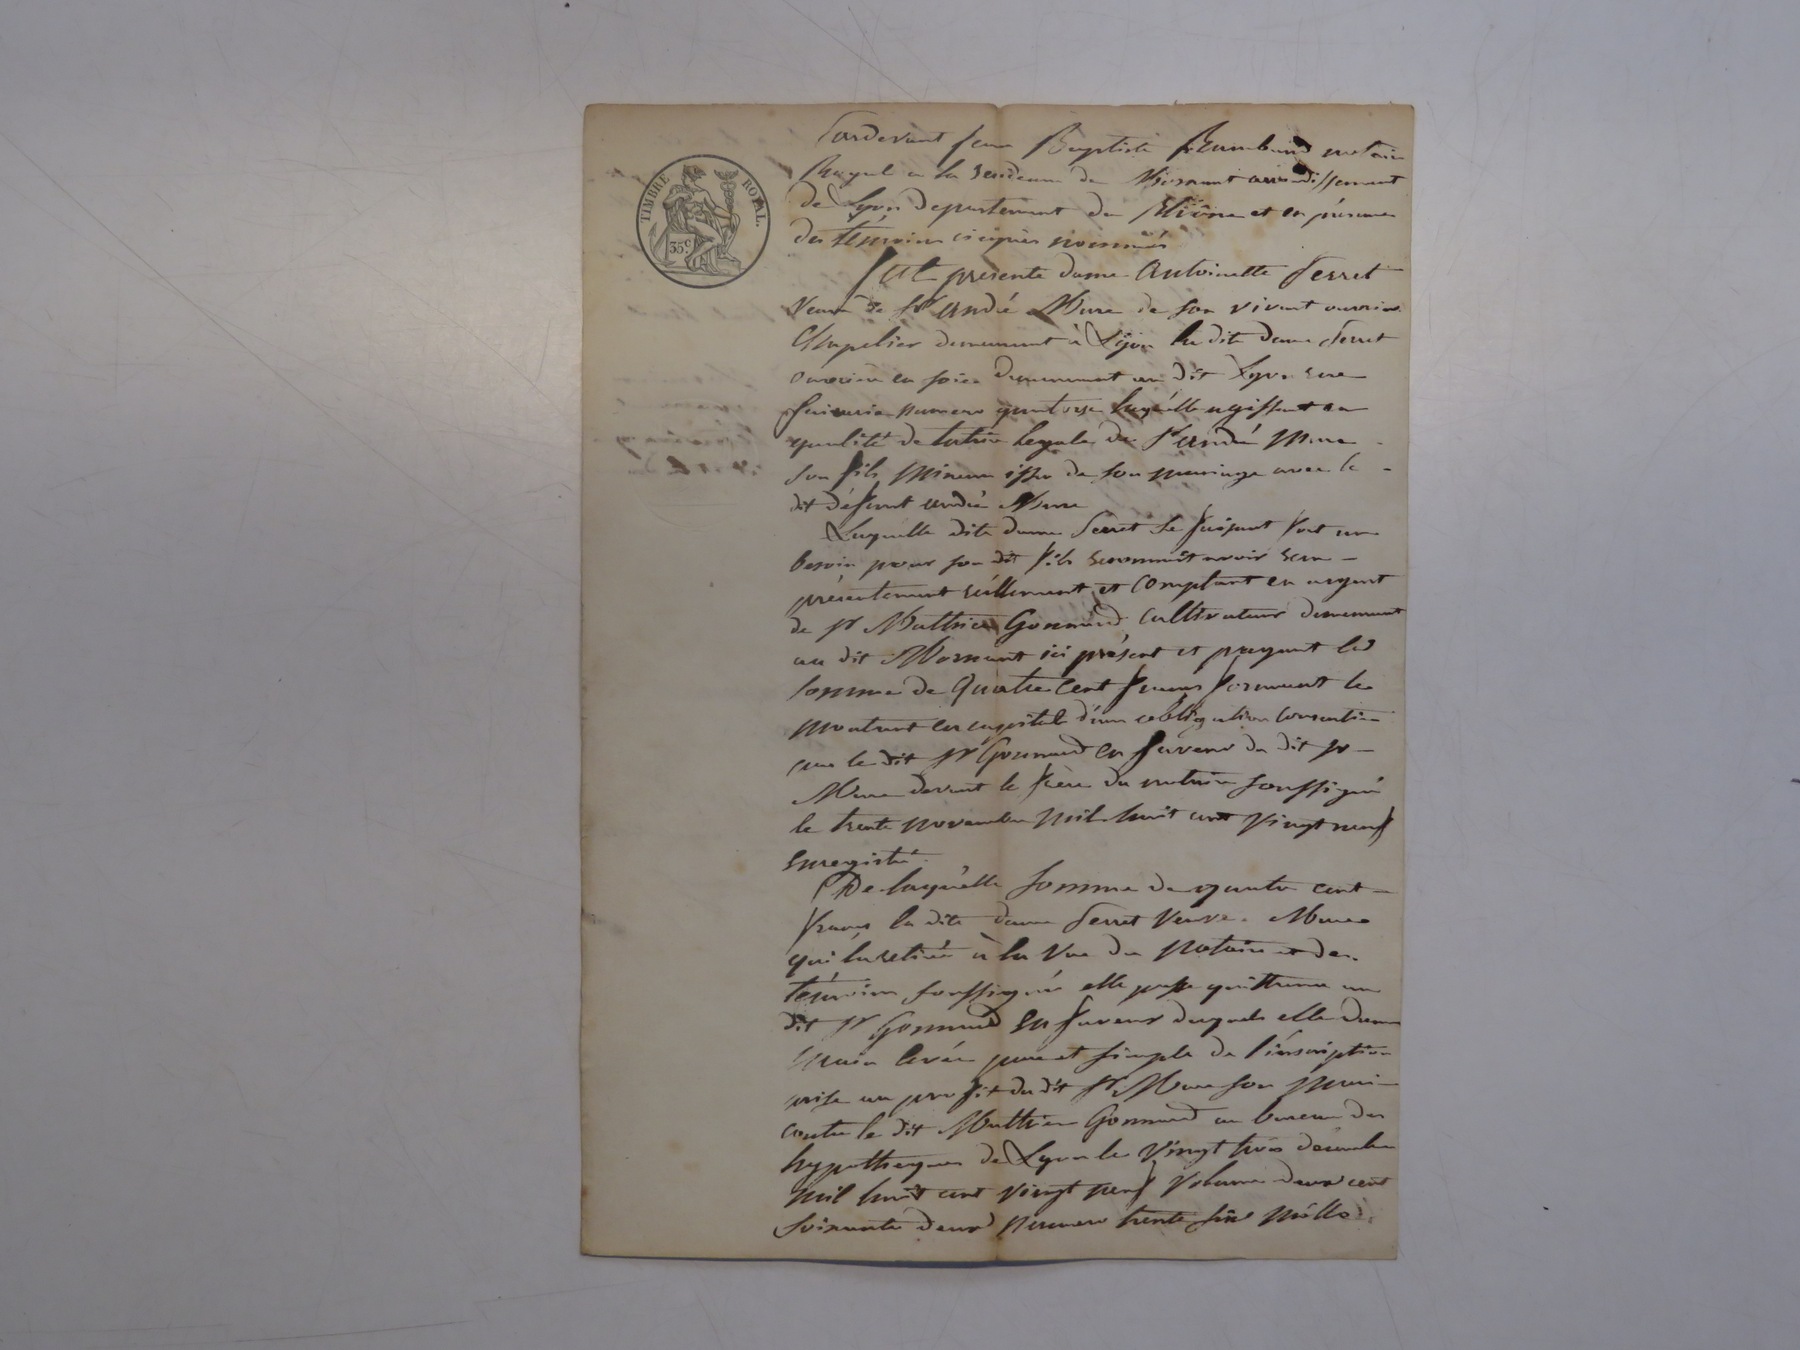 TIMBRE ROYAL.
35c
Pardevant Jean Baptiste notaire
Royal a la residence de Mornant arrondissement
de Lyon departement du Rhône et en présence
des témoins ci après nommés
fut presente dame Antoinette Ferret
Veuve de Sr André Mure de son vivant ouvrier
Chapelier demeurant à Lyon la dite dame Ferret
ouvrière en soie demeurant au dit Lyon rue
numero quatorze laquelle agissant en
qualité de tutrice legale de Sr andré Mure
son fils Mineur issu de son mariage avec le
dit défunt andré Mure
Laquelle dite dame Ferret se faisant fort au
besoin pour son dit fils reconnait avoir recu
présentement réellement et comptant en argent
de Sr Mathieu Gonnard cultivateur demeurant
au dit Mornant ici présent et payant la
somme de Quatre Cent francs formant le
montant en capital d'une obligation consentie
par le dit Sr Gonnard en faveur du dit Sr
Mure devant le père du notaire soussigné
le trente novembre mil huit cent vingt neuf
Enregistré.
De laquelle somme de quatre cent
francs la dite dame Ferret Veuve Mure
qui la retirée à la Vue du Notaire et des
témoins soussignés elle passe quittance au
dit Sr Gonnard En faveur duquel elle donne
Main levée pure et simple de l'inscription
prise au profit du dit Sr Mure son Mari
contre le dit Mathieu Gonnard au bureau des
hypotheques de Lyon le vingt trois décembre
mil huit cent vingt neuf Volume deux cent
soixante deux numero trente six mille